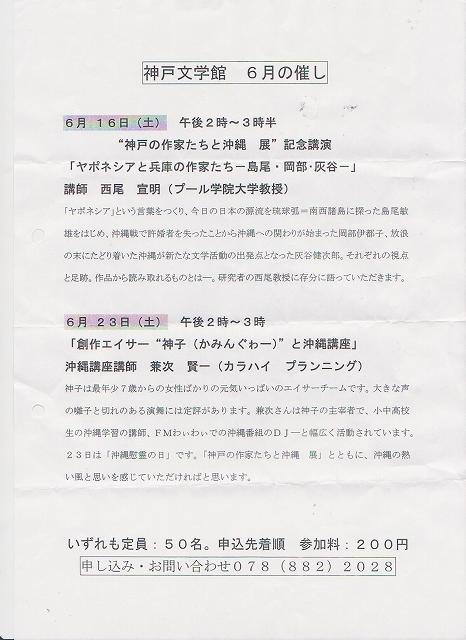 神戸文学館　６月の催し
６月 １６日（土）　午後２時～３時半
“神戸の作家たちと沖縄　展”記念講演
「ヤポネシアと兵庫の作家たち－島尾・岡部・灰谷－」
講師　西尾　宣明（プール学院大学教授）
「ヤポネシア」という言葉をつくり、今日の日本の源流を琉球弧＝南西諸島に探った島尾敏
雄をはじめ、沖縄戦で許婚者を失ったことから沖縄への関わりが始まった岡部伊都子、放浪
の末にたどり着いた沖縄が新たな文学活動の出発点となった灰谷健次郎。それぞれの視点
と足跡。作品から読み取れるものとは―。研究者の西尾教授に存分に語っていただきます。
６月 ２３日（土）　午後２時～３時
「創作エイサー“神子（かみんぐゎー）”と沖縄講座」
沖縄講座講師　兼次　賢一（カラハイ　プランニング）
神子は最年少７歳からの女性ばかりの元気いっぱいのエイサーチームです。大きな声
の囃子と切れのある演舞には定評があります。兼次さんは神子の主宰者で、小中高校
生の沖縄学習の講師、ＦＭわぃわぃでの沖縄番組のＤＪ―と幅広く活動されています。
２３日は「沖縄慰霊の日」です。「神戸の作家たちと沖縄　展」とともに、沖縄の熱
い風と思いを感じていただければと思います。
いずれも定員：５０名。申込先着順　参加料：２００円
申し込み・お問い合わせ０７８（８８２）２０２８